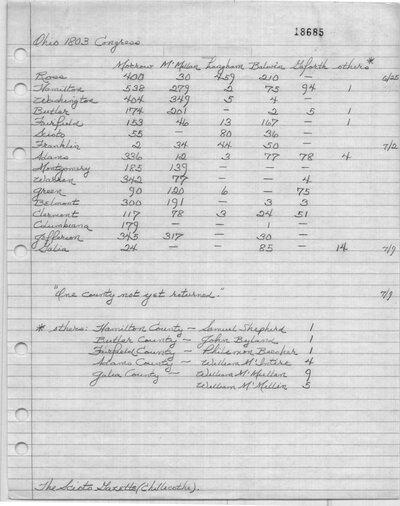 18685
Ohio 1803 Congress
Morrow M'Millan Langham Baldwin Goforth others*
Ross 400 30 459 210 — 6/25
Hamilton 538 279 2 75 94 1
Washington 404 349 5 4 —
Butler 174 201 — 2 5 1
Fairfield 153 46 13 167 — 1
Scioto 55 — 80 36 —
Franklin 2 34 44 50 — 7/2
Adams 336 12 3 77 78 4
Montgomery 185 139 — — —
Warren 342 77 — — 4
Green 90 120 6 — 75
Belmont 300 191 — 3 3
Clermont 117 78 3 24 51
Columbiana 179 — — 1 —
Jefferson 345 317 — 30 —
Galia 24 — — 85 — 14 7/9
"One county not yet returned." 7/9
* others: Hamilton County — Samuel Shepherd 1
Butler County — John 1
Fairfield County — Philemon Beecher 1
Adams County — William M'Intire 4
Galia County — William M'Mullan 9
William M'Millin 5
The Scioto Gazette (Chillicothe).